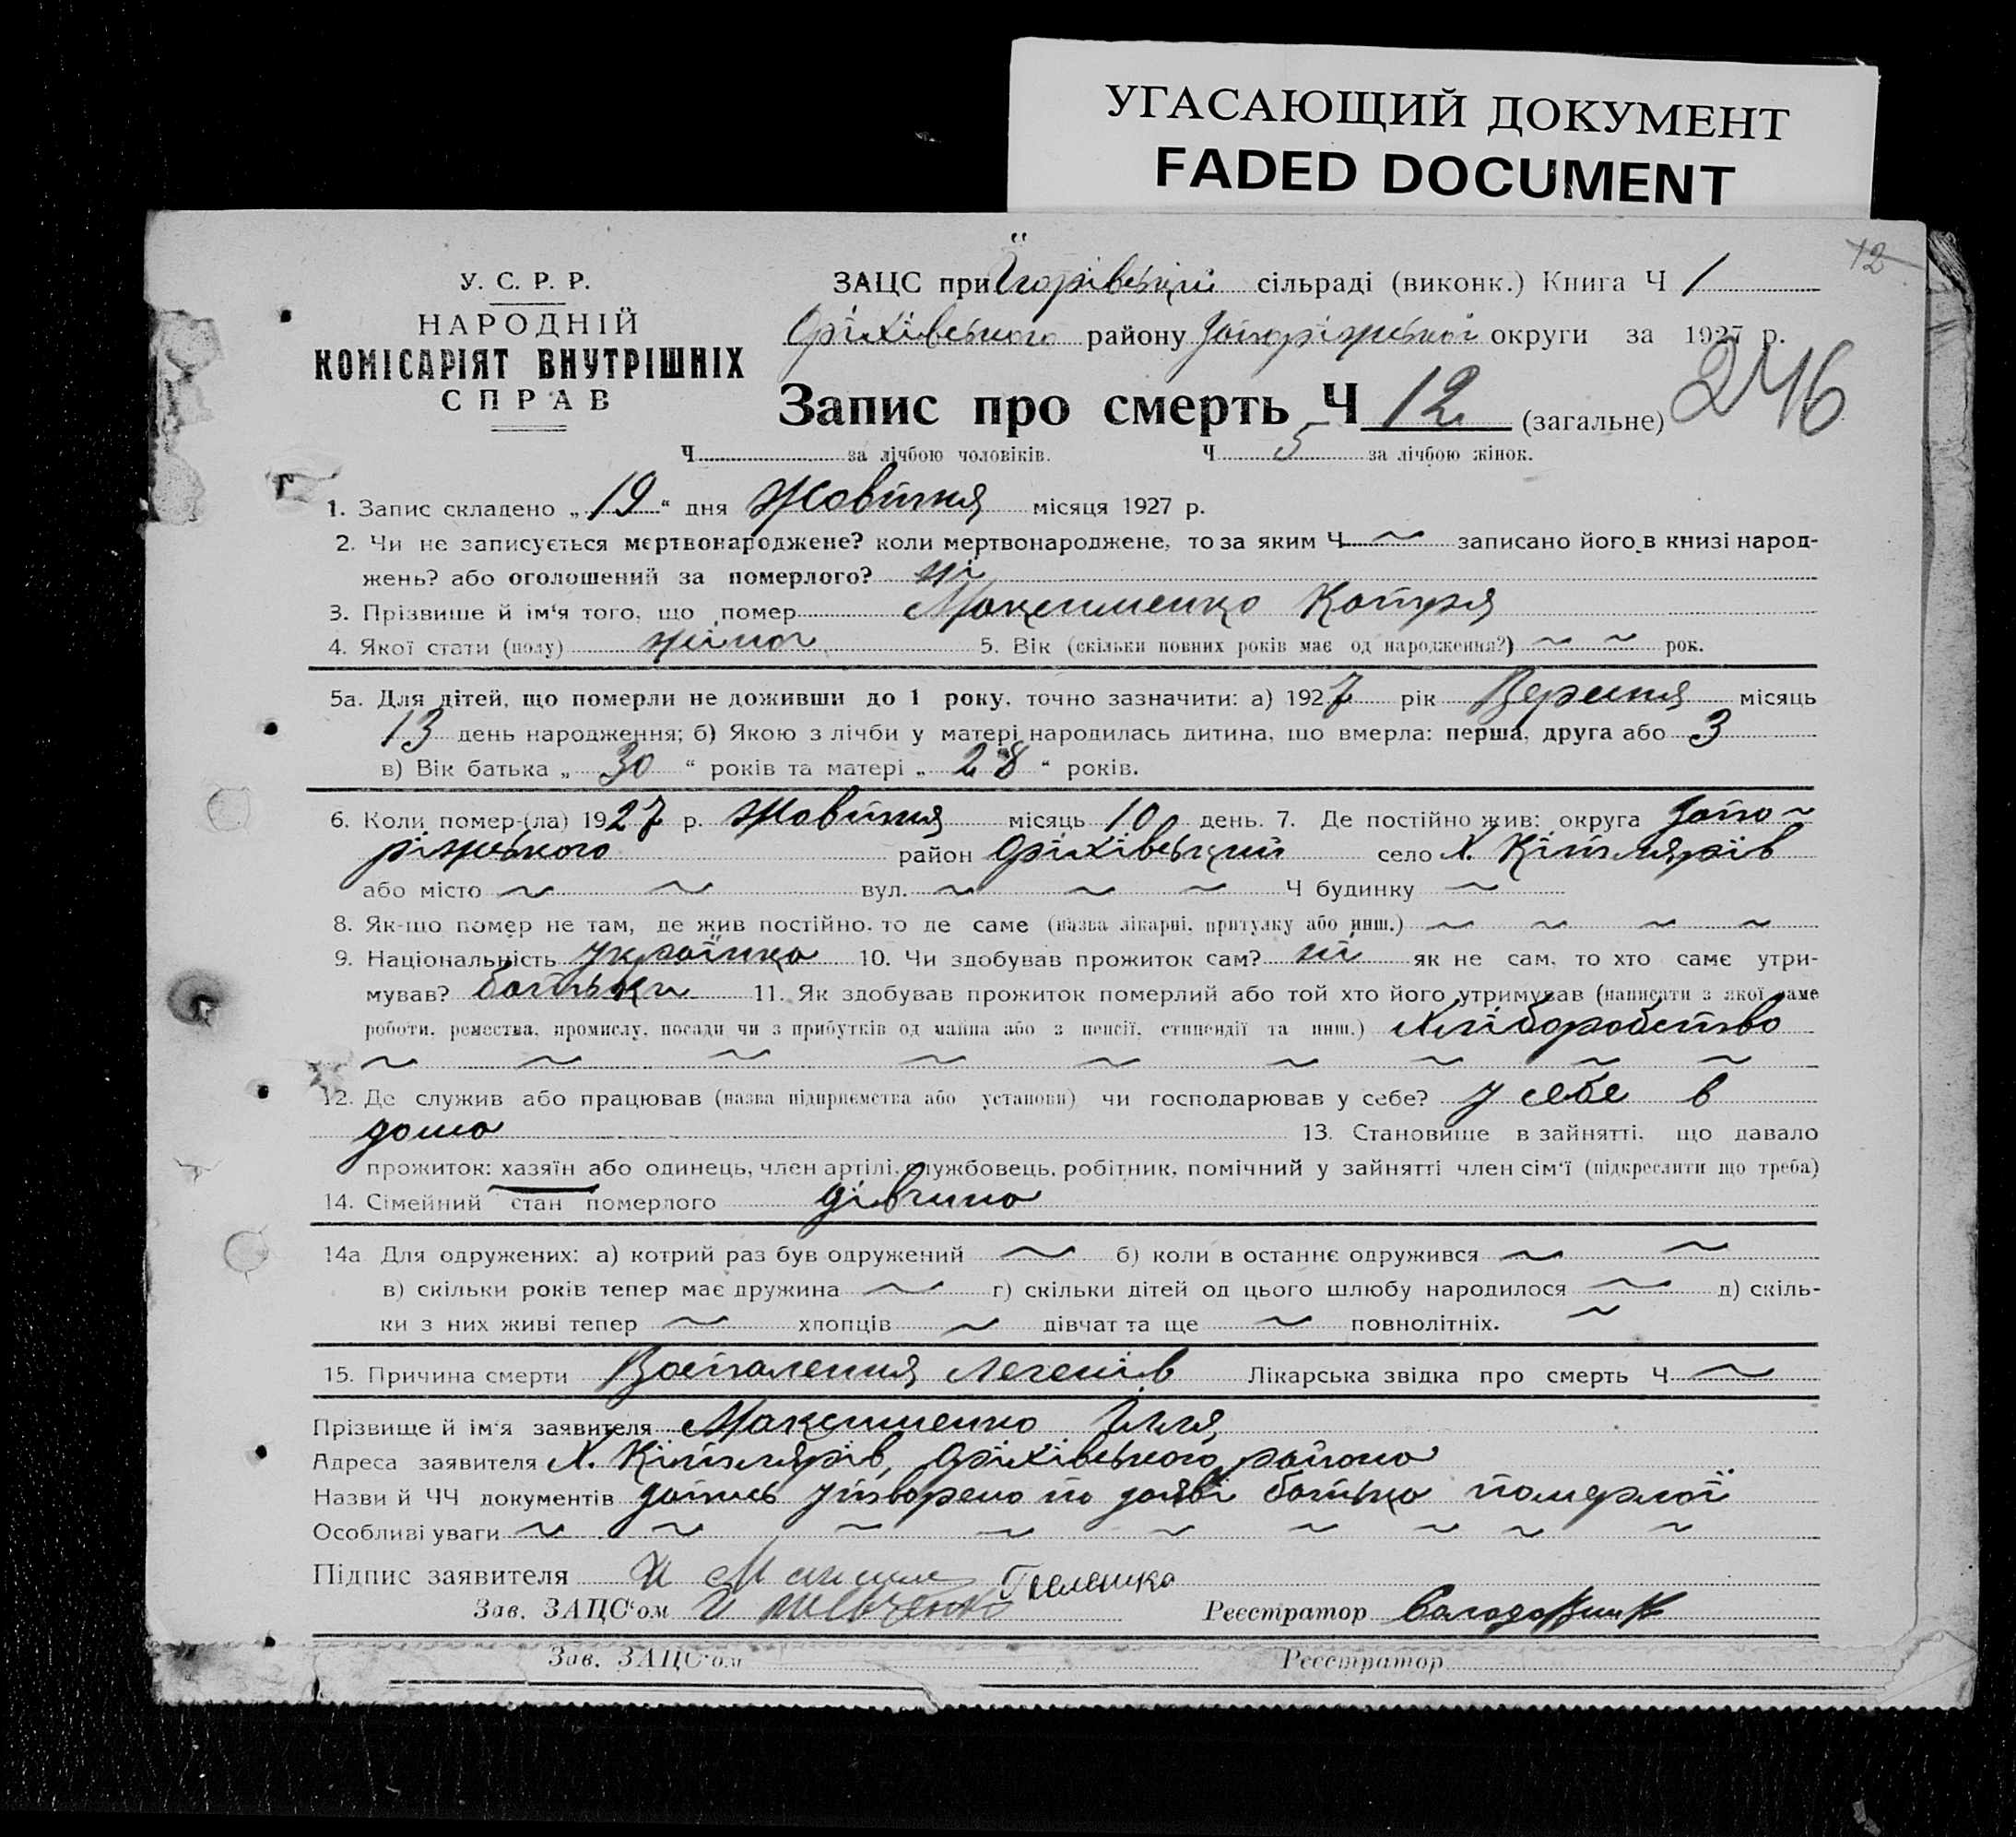 УГАСАЮЩИЙ ДОКУМЕНТ
FADED DOCUMENT
12
У. С. Р. Р.
НАРОДНІЙ
КОМІСАРІЯТ ВНУТРІШНІХ
СПРАВ
ЗАЦС при сільраді (виконк.) Книга Ч 1
Оріхівського району Запоріжської округи за 1927 р.
Запис про смерть Ч 12 (загальне) 246
Ч за лічбою чоловіків. Ч 5 за лічбою жінок.
1. Запис складено „19“ дня Жовтня місяця 1927 р.
2. Чи не записується мертвонароджене? коли мертвонароджене, то за яким Ч ~ записано його в книзі народ-
жень? або оголошений за померлого? ні
3. Прізвище й ім'я того, що помер Максименко Катря
4. Якої стати (полу) жіноч 5. Вік (скільки повних років має од народження?) ~ ~ рок.
5а. Для дітей, що померли не доживши до 1 року, точно зазначити: а) 1927 рік Вересня місяць
13 день народження; б) Якою з лічби у матері народилась дитина, що вмерла: перша, друга або 3
в) Вік батька „30“ років та матері „28“ років.
6. Коли помер-(ла) 1927 р. Жовтня місяць 10 день. 7. Де постійно жив: округа Запо~
ріжського район Оріхівський село Х. Кітлярів
або місто ~ ~ вул. ~ ~ ~ Ч будинку ~
8. Як-що помер не там, де жив постійно, то де саме (назва лікарні, притулку або инш.) ~ ~ ~ ~
9. Національність Українка 10. Чи здобував прожиток сам? ні як не сам, то хто саме утри-
мував? батьки 11. Як здобував прожиток померлий або той хто його утримував (написати з якої саме
роботи, ремества, промислу, посади чи з прибутків од майна або з пенсії, стипендії та инш.) Хліборобство
~ ~ ~ ~ ~ ~ ~ ~ ~
12. Де служив або працював (назва підприємства або установи) чи господарював у себе? у себе в
дома 13. Становище в зайнятті, що давало
прожиток: хазяїн або одинець, член артілі, службовець, робітник, помічний у зайнятті член сім'ї (підкреслити що треба)
14. Сімейний стан померлого дівчина
14а Для одружених: а) котрий раз був одружений ~ б) коли в останнє одружився ~ ~
в) скільки років тепер має дружина ~ г) скільки дітей од цього шлюбу народилося ~ д) скіль-
ки з них живі тепер ~ хлопців ~ дівчат та ще ~ повнолітніх. ~
15. Причина смерти Воспаления легенів Лікарська звідка про смерть Ч ~
Прізвище й ім'я заявителя Максименко Ілля
Адреса заявителя Х. Кітлярів, Оріхівського району
Назви й ЧЧ документів запись утворено по заяві батька померлої
Особливі уваги ~ ~ ~ ~ ~ ~ ~ ~ ~
Підпис заявителя И
Зав. ЗАЦС'ом Реєстратор
Зав. ЗАЦС'ом Реєстратор